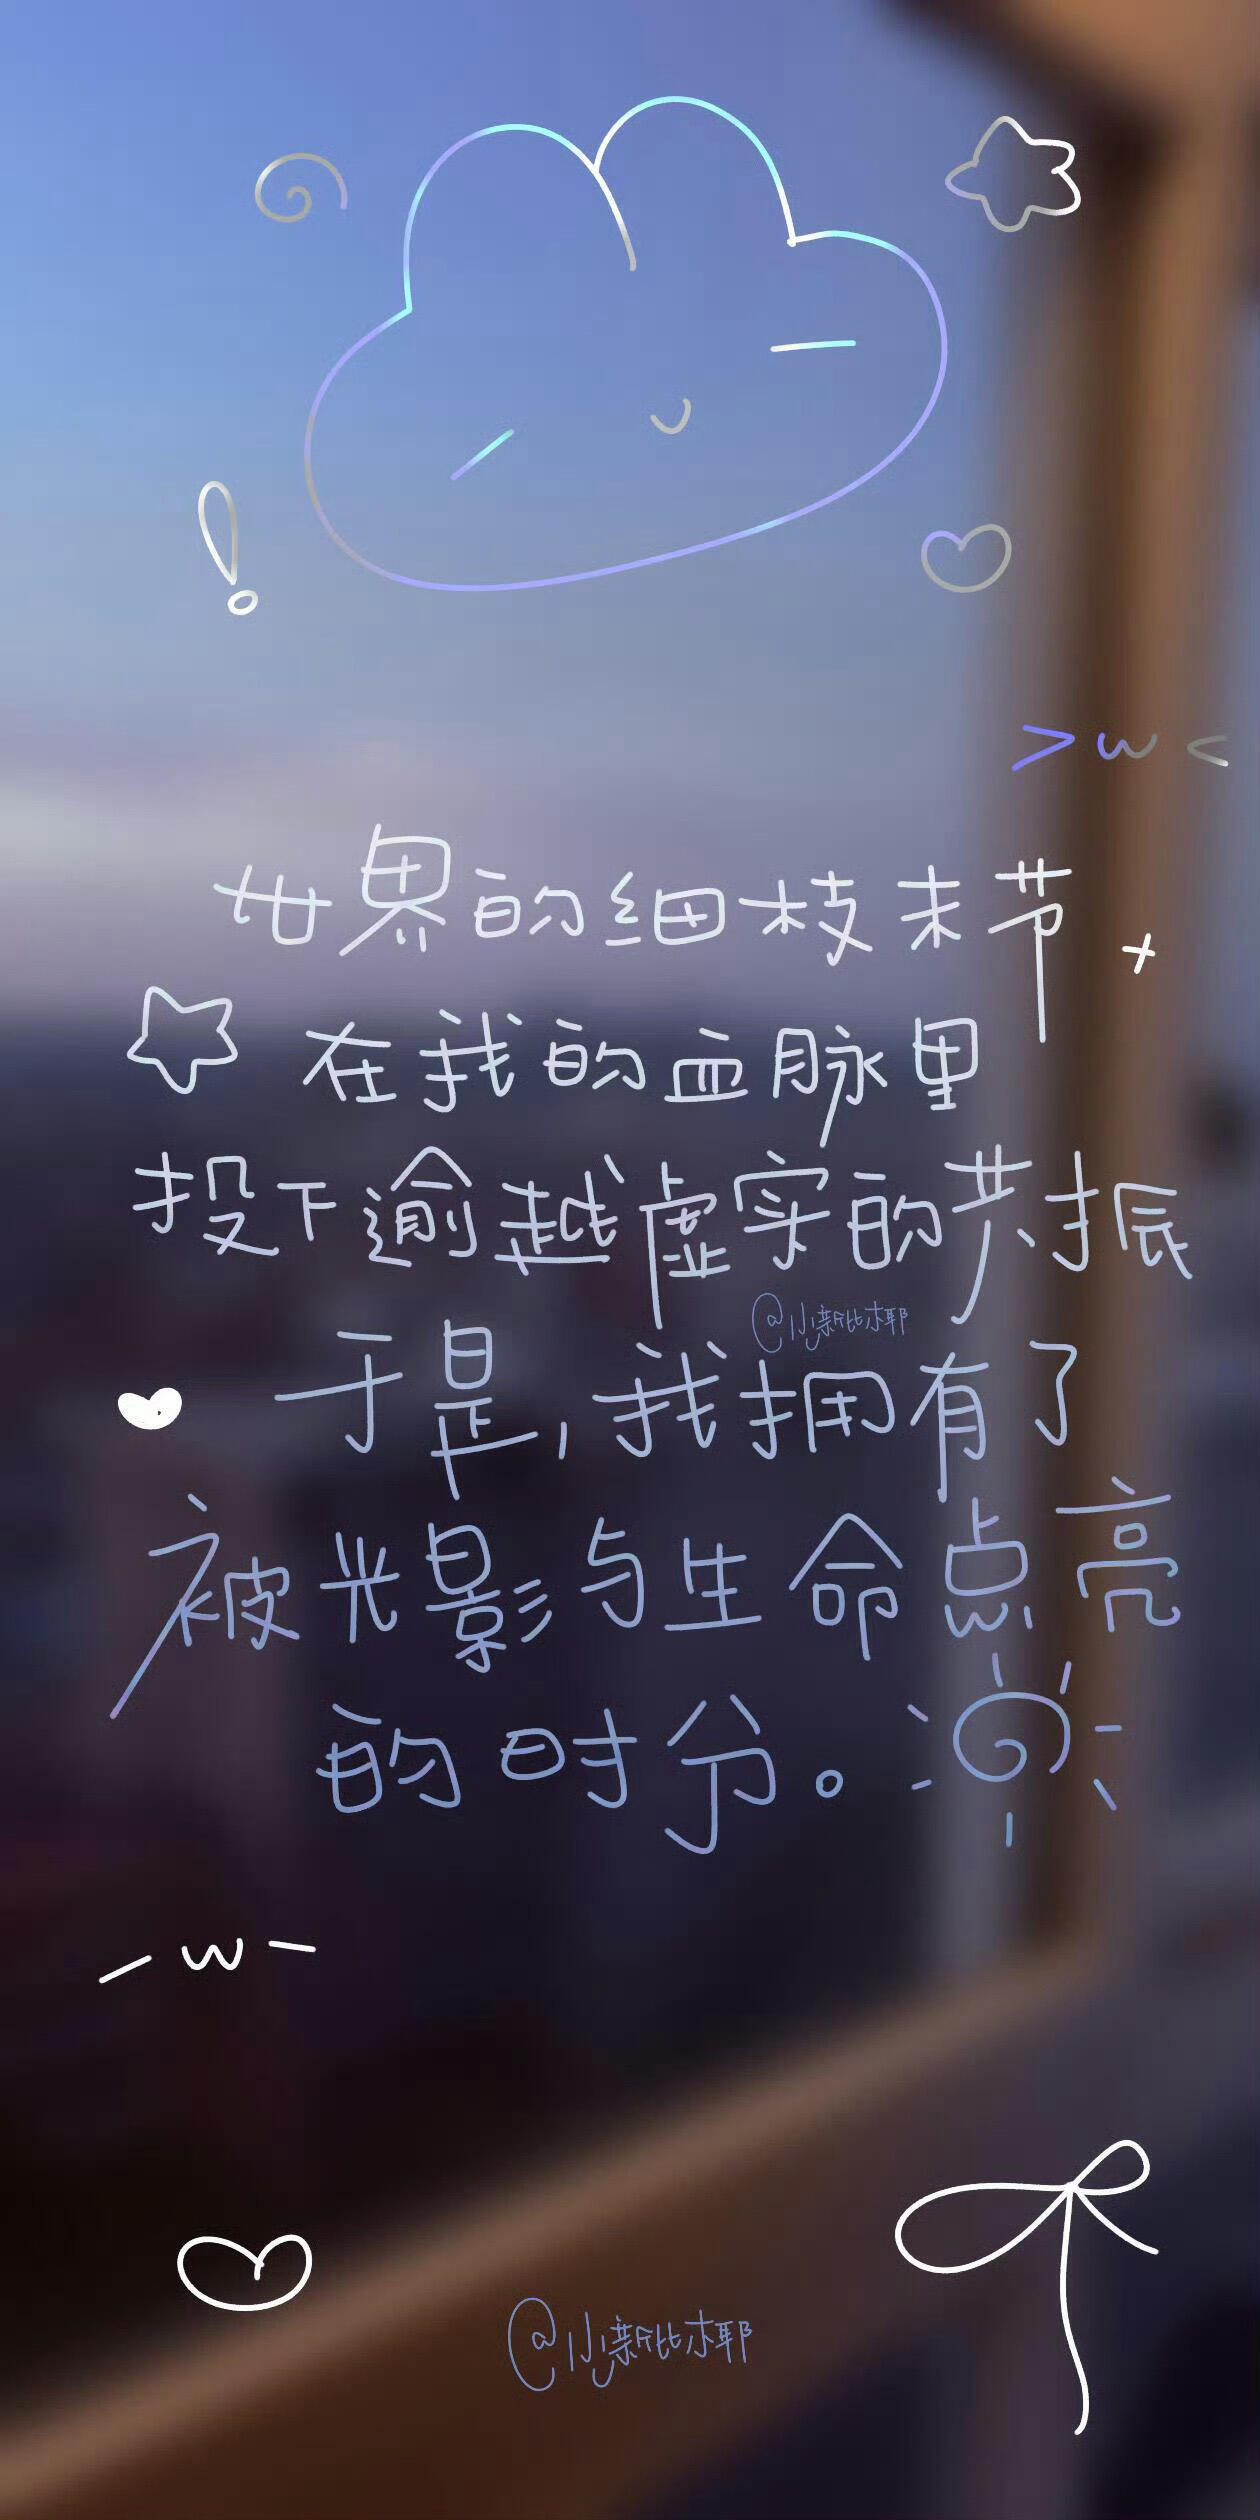 >w<
世界的细枝末节
在我的血脉里
投下逾越虚实的共振
@小新比椰
于是,我拥有了
被光影与生命点亮
的时分。
-w-
@小新比椰